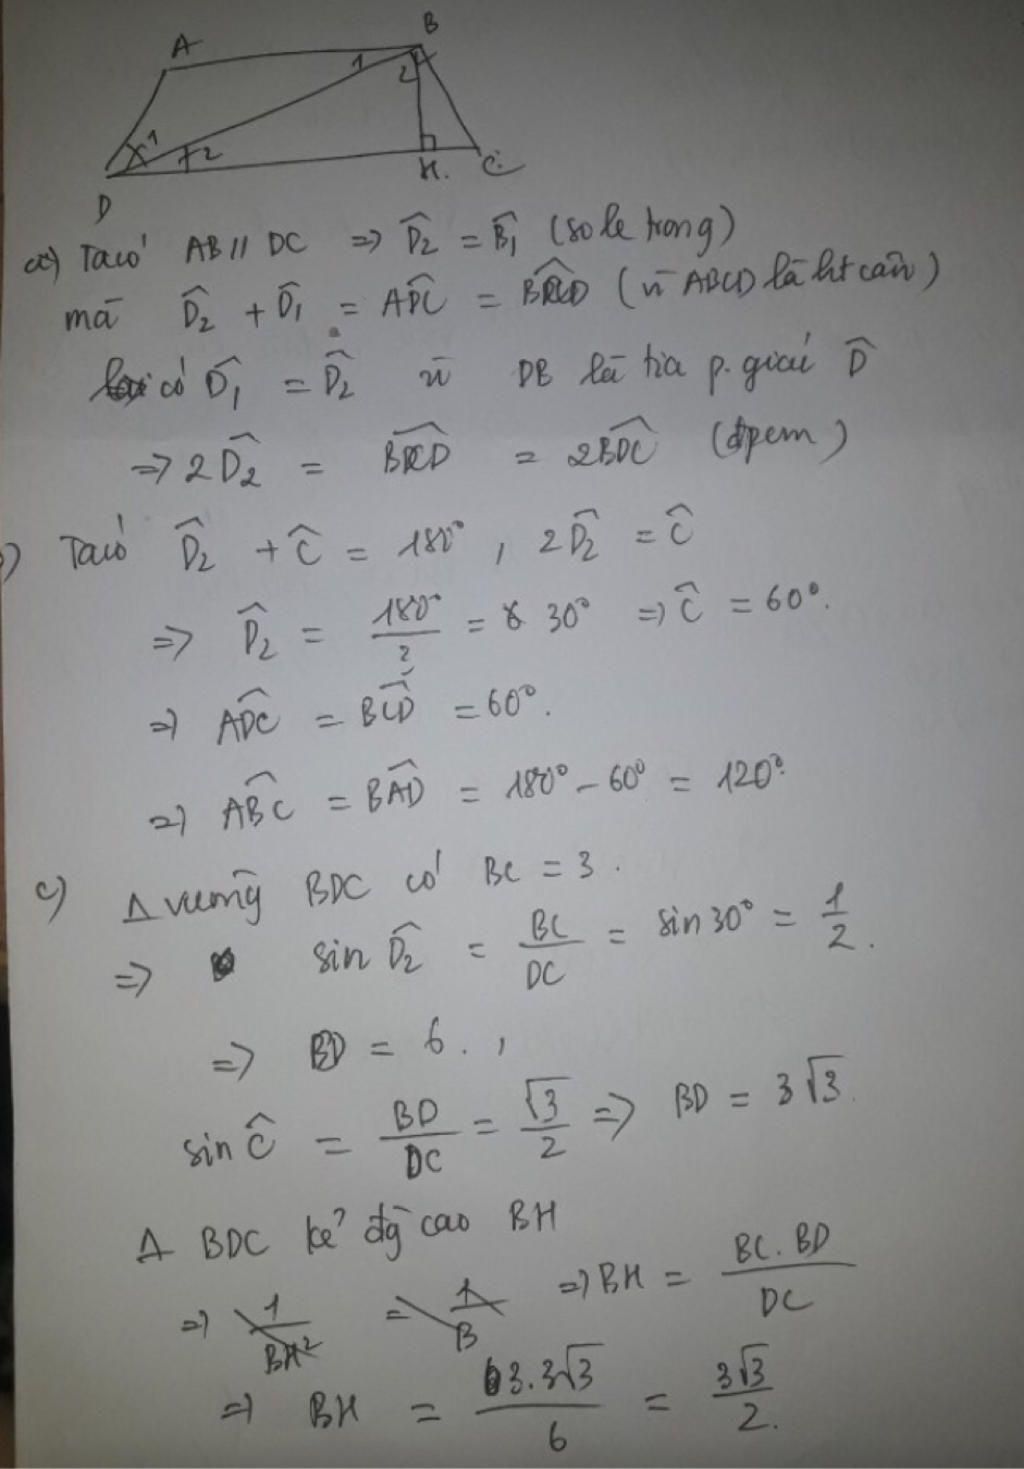 A B
1 2
1 2
D H. C
a) Ta có AB // DC => D̂2 = B̂1 (so le trong)
mà D̂2 + D̂1 = ADC = BCD (vì ABCD là ht cân)
có D̂1 = D̂2 vì DB là tia p. giác D̂
=> 2D̂2 = BCD = 2BDC (đpcm)
) Ta có D̂2 + Ĉ = 180°, 2D̂2 = Ĉ
=> D̂2 = 180°/ = 30° => Ĉ = 60°.
=> ADC = BCD = 60°.
=> ABC = BAD = 180° - 60° = 120°
c) Δ vuông BDC có BC = 3.
=> sin D̂2 = BC/DC = sin 30° = 1/2.
=> BD = 6.,
sin Ĉ = BD/DC = √3/2 => BD = 3√3.
Δ BDC kẻ đg cao BH
=> 1/BH² = 1/B => BH = BC.BD/DC
=> BH = 3.3√3/6 = 3√3/2.